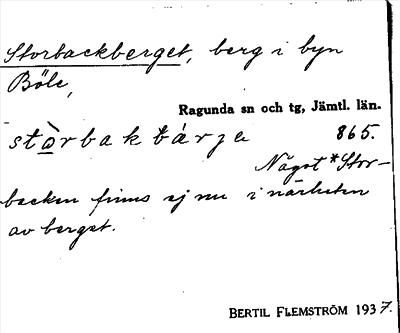 Storbackberget, berg i byn
Böle,
Ragunda sn och tg, Jämtl. län.
stò̱rbakbárʒe 865.
Något *Stor-
backen finns ej nu i närheten
av berget.
BERTIL FLEMSTRÖM 1937.